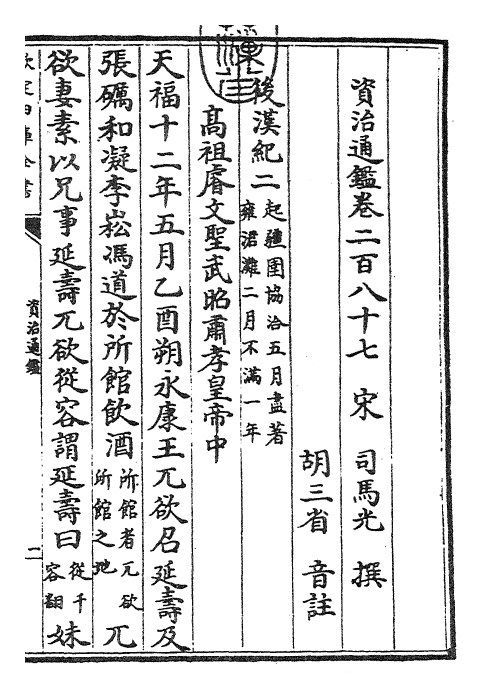 資治通鑑卷二百八十七 宋 司馬光 撰
胡三省 音註
後漢紀二 起彊圉協洽五月盡著
雍涒灘二月不滿一年
高祖睿文聖武昭肅孝皇帝中
天福十二年五月乙酉朔永康王兀欲召延壽及
張礪和凝李崧馮道於所館飲酒 所館者兀欲
所館之地 兀
欲妻素以兄事延壽兀欲從容謂延壽曰 從千
容翻 妹
資治通鑑
二